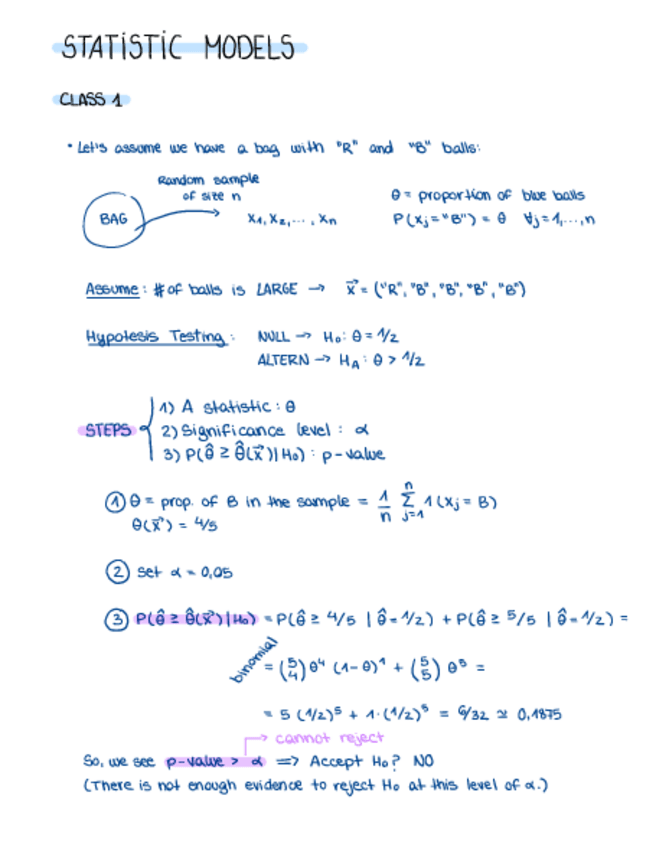 STATISTIC MODELS
CLASS 1
• Let's assume we have a bag with "R" and "B" balls:
Random sample
of size n
BAG
x₁, x₂, ... , xₙ
θ = proportion of blue balls
P(xⱼ = "B") = θ ∀j = 1, ..., n
Assume: # of balls is LARGE → x⃗ = ("R", "B", "B", "B", "B")
Hypotesis Testing: NULL → H₀: θ = 1/2
ALTERN → H_A: θ > 1/2
STEPS
1) A statistic: θ
2) Significance level: α
3) P(θ̂ ≥ θ̂(x⃗) | H₀): p-value
① θ = prop. of B in the sample = 1/n ∑ⱼ₌₁ⁿ 1(xⱼ = B)
θ(x⃗) = 4/5
② Set α = 0,05
③ P(θ̂ ≥ θ̂(x⃗) | H₀) = P(θ̂ ≥ 4/5 | θ̂ = 1/2) + P(θ̂ ≥ 5/5 | θ̂ = 1/2) =
binomial
= (5 4) θ⁴ (1-θ)¹ + (5 5) θ⁵ =
= 5 (1/2)⁵ + 1·(1/2)⁵ = 6/32 ≃ 0,1875
→ cannot reject
So, we see p-value > α ⇒ Accept H₀? NO
(There is not enough evidence to reject H₀ at this level of α.)